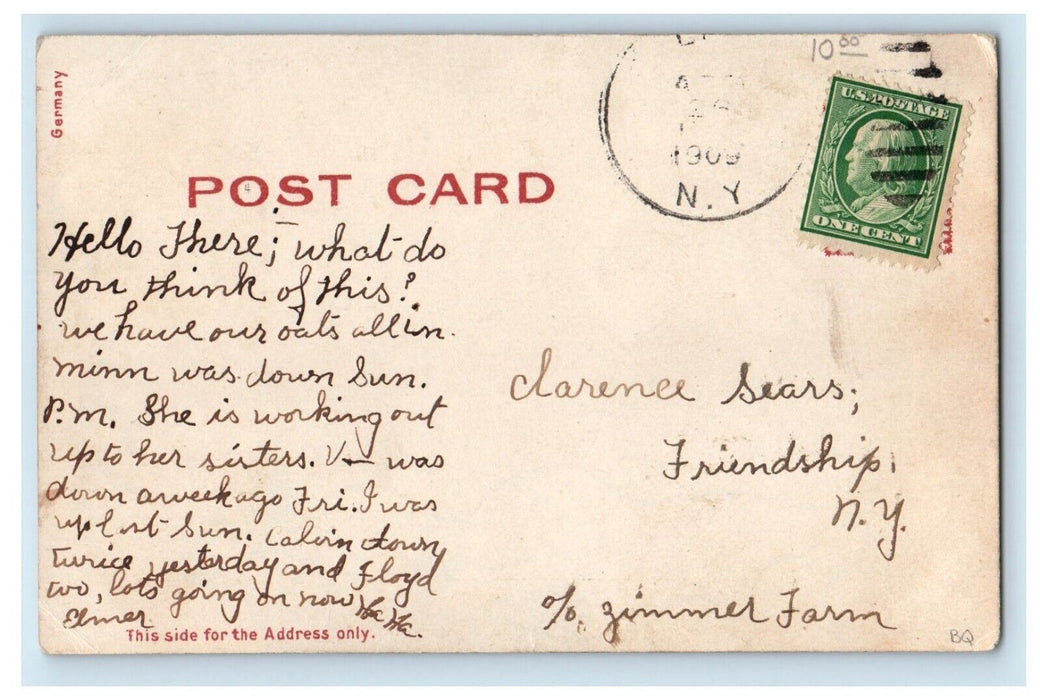 Germany
POST CARD
10 00
1909
N.Y
U.S. POSTAGE
ONE CENT
Hello There; what do
you think of this?
we have our oats all in.
minn was down Sun.
P.m. She is working out
up to her sisters. V— was
down a week ago Fri. I was
up last Sun. Calvin down
twice yesterday and Floyd
two, lots going on now Ha Ha.
Elmer
This side for the Address only.
Clarence Sears;
Friendship,
N.Y.
c/o Zimmer Farm
BQ